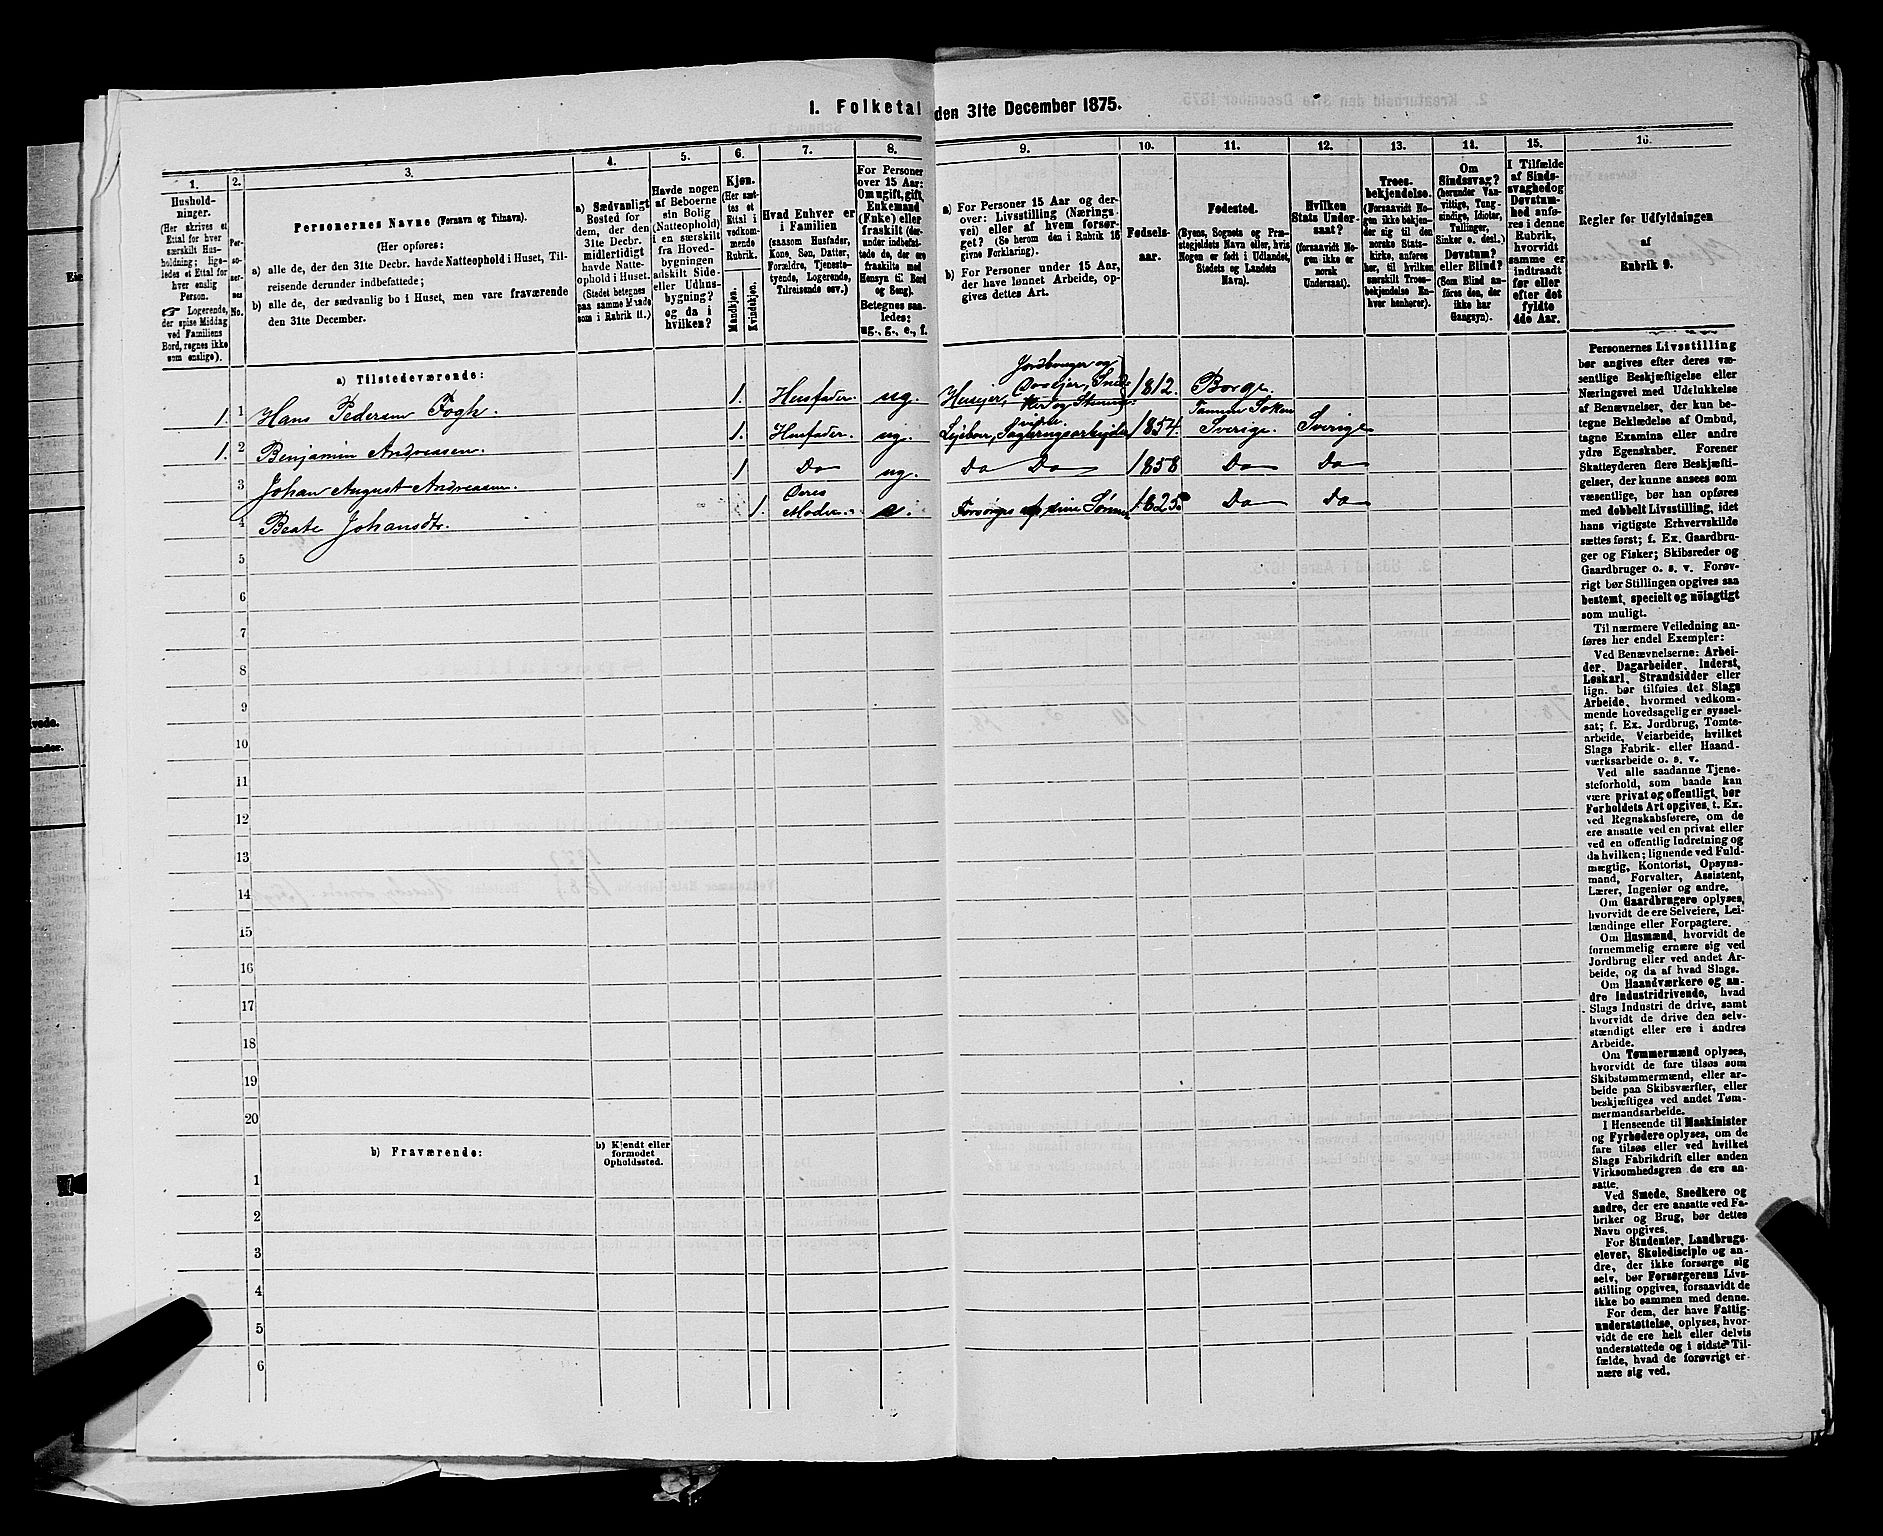 1. Folketal den 31te December 1875.
1.
Hushold-
ninger.
(Her skrives et
Ettal for hver
særskilt Hus-
holdning; lige-
ledes et Ettal for
hver enslig
Person.
Logerende,
der spise Middag
ved Familiens
Bord, regnes ikke
som enslige).
2.
Per-
so-
ner-
nes
No.
3.
Personernes Navne (Fornavn og Tilnavn).
(Her opføres:
a) alle de, der den 31te Decbr. havde Natteophold i Huset, Til-
reisende derunder indbefattede;
b) alle de, der sædvanlig bo i Huset, men vare fraværende
den 31te December.
4.
a) Sædvanligt
Bosted for
dem, der den
31te Decbr.
midlertidigt
havde Natte-
ophold i Huset.
(Stedet betegnes
paa samme Maade
som i Rubrik 11.)
5.
Havde nogen
af Beboerne
sin Bolig
(Natteophold)
i en særskilt
fra Hoved-
bygningen
adskilt Side-
eller Udhus-
bygning?
og da i
hvilken?
6.
Kjøn.
(Her sæt-
tes et
Ettal i
vedkom-
mende
Rubrik.
Mandkjøn.
Kvindekjøn.
7.
Hvad Enhver er
i Familien
(saasom Husfader,
Kone, Søn, Datter,
Forældre, Tjeneste-
tyende, Logerende,
Tilreisende osv.)
8.
For Personer
over 15 Aar:
Om ugift, gift,
Enkemand
(Enke) eller
fraskilt (der-
under indbefat-
tede de, der ere
fraskilte med
Hensyn til Bord
og Seng).
Betegnes saa-
ledes:
ug., g., e., f.
9.
a) For Personer 15 Aar og der-
over: Livsstilling (Nærings-
vei) eller af hvem forsør-
get? (Se herom den i Rubrik 16
givne Forklaring).
b) For Personer under 15 Aar,
der have lønnet Arbeide, op-
gives dettes Art.
10.
Fødsels-
aar.
11.
Fødested.
(Byens, Sognets og Præ-
stegjeldets Navn eller, hvis
Nogen er født i Udlandet,
Stedets og Landets
Navn).
12.
Hvilken
Stats Under-
saat?
(forsaavidt No-
gen ikke er
norsk
Undersaat).
13.
Troes-
bekjendelse.
(Forsaavidt No-
gen ikke bekjen-
der sig til den
norske Stats-
kirke, anføres
her, til hvilken
særskilt Troes-
bekjendelse En-
hver henhører).
14.
Om
Sindssvag?
(herunder Van-
vittige, Tung-
sindige, Idioter,
Tullinger,
Sinker o. desl.).
Døvstum?
eller Blind?
(Som Blind an-
føres den, der
ikke har
Gangsyn).
15.
I Tilfælde
af Sinds-
svaghed og
Døvstum-
hed anfø-
res i denne
Rubrik,
hvorvidt
samme er
indtraadt
før eller
efter det
fyldte
4de Aar.
16.
Regler for Udfyldningen
af
Rubrik 9.
a) Tilstedeværende:
1. 1 Hans Pedersen Fogh. 1. Husfader. ug. Huseier, Jordbruger og 1812. Borge.
1. 2 Benjamin Andreassen. 1. Husfader. ug. 1854. Sverige. Sverige
3 Johan August Andreassn. 1 Do ug. Do Do 1858 Do Do
4 Beate Johansdtr. 1. Deres
Moder. e. Forsørges af sine Sønner 1825. Do Do
5
6
7
8
9
10
11
12
13
14
15
16
17
18
19
20
b) Fraværende:
b) Kjendt eller
formodet
Opholdssted.
1
2
3
4
5
6
Personernes Livsstilling
bør angives efter deres væ-
sentlige Beskjæftigelse eller
Næringsvei med Udelukkelse
af Benævnelser, der kun be-
tegne Beklædelse af Ombud,
tagne Examina eller andre
ydre Egenskaber. Forener
Skatteyderen flere Beskjæfti-
gelser, der kunne ansees som
væsentlige, bør han opføres
med dobbelt Livsstilling, idet
hans vigtigste Erhvervskilde
sættes først; f. Ex. Gaardbru-
ger og Fisker; Skibsreder og
Gaardbruger o. s. v. Forøv-
rigt bør Stillingen opgives saa
bestemt, specielt og nöiagtigt
som muligt.
Til nærmere Veiledning an-
føres her endel Exempler:
Ved Benævnelserne: Arbei-
der, Dagarbeider, Inderst,
Løskarl, Strandsidder eller
lign. bør tilføies det Slags
Arbeide, hvormed vedkom-
mende hovedsagelig er syssel-
sat; f. Ex. Jordbrug, Tomte-
arbeide, Veiarbeide, hvilket
Slags Fabrik- eller Haand-
værksarbeide o. s. v.
Ved alle saadanne Tjene-
steforhold, som baade kan
være privat og offentligt, bør
Forholdets Art opgives, t. Ex.
ved Regnskabsførere, om de
ere ansatte ved en privat eller
ved en offentlig Indretning og
da hvilken; lignende ved Fuld-
mægtig, Kontorist, Opsyns-
mand, Forvalter, Assistent,
Lærer, Ingeniør og andre.
Om Gaardbrugere oplyses,
hvorvidt de ere Selveiere, Lei-
lændinge eller Forpagtere.
Om Husmænd, hvorvidt de
fornemmelig ernære sig ved
Jordbrug eller ved andet Ar-
beide, og da af hvad Slags.
Om Haandværkere og an-
dre Industridrivende, hvad
Slags Industri de drive, samt
hvorvidt de drive den selv-
stændigt eller ere i andres
Arbeide.
Om Tømmermænd oplyses,
hvorvidt de fare tilsøs som
Skibstømmermænd, eller ar-
beide paa Skibsværfter, eller
beskjæftiges ved andet Tøm-
mermandsarbeide.
I Henseende til Maskinister
og Fyrbødere oplyses, om de
fare tilsøs eller ved hvilket
Slags Fabrikdrift eller anden
Virksomhedsgren de ere an-
satte.
Ved Smede, Snedkere og
andre, der ere ansatte ved Fa-
briker og Brug, bør dettes
Navn opgives.
For Studenter, Landbrugs-
elever, Skoledisciple og an-
dre, der ikke forsørge sig
selv, bør Forsørgerens Livs-
stilling opgives, forsaavidt de
ikke bo sammen med denne.
For dem, der have Fattig-
understøttelse, oplyses, hvor-
vidt de ere helt eller delvis
understøttede og i sidste Til-
fælde, hvad de forøvrigt er-
nære sig ved.